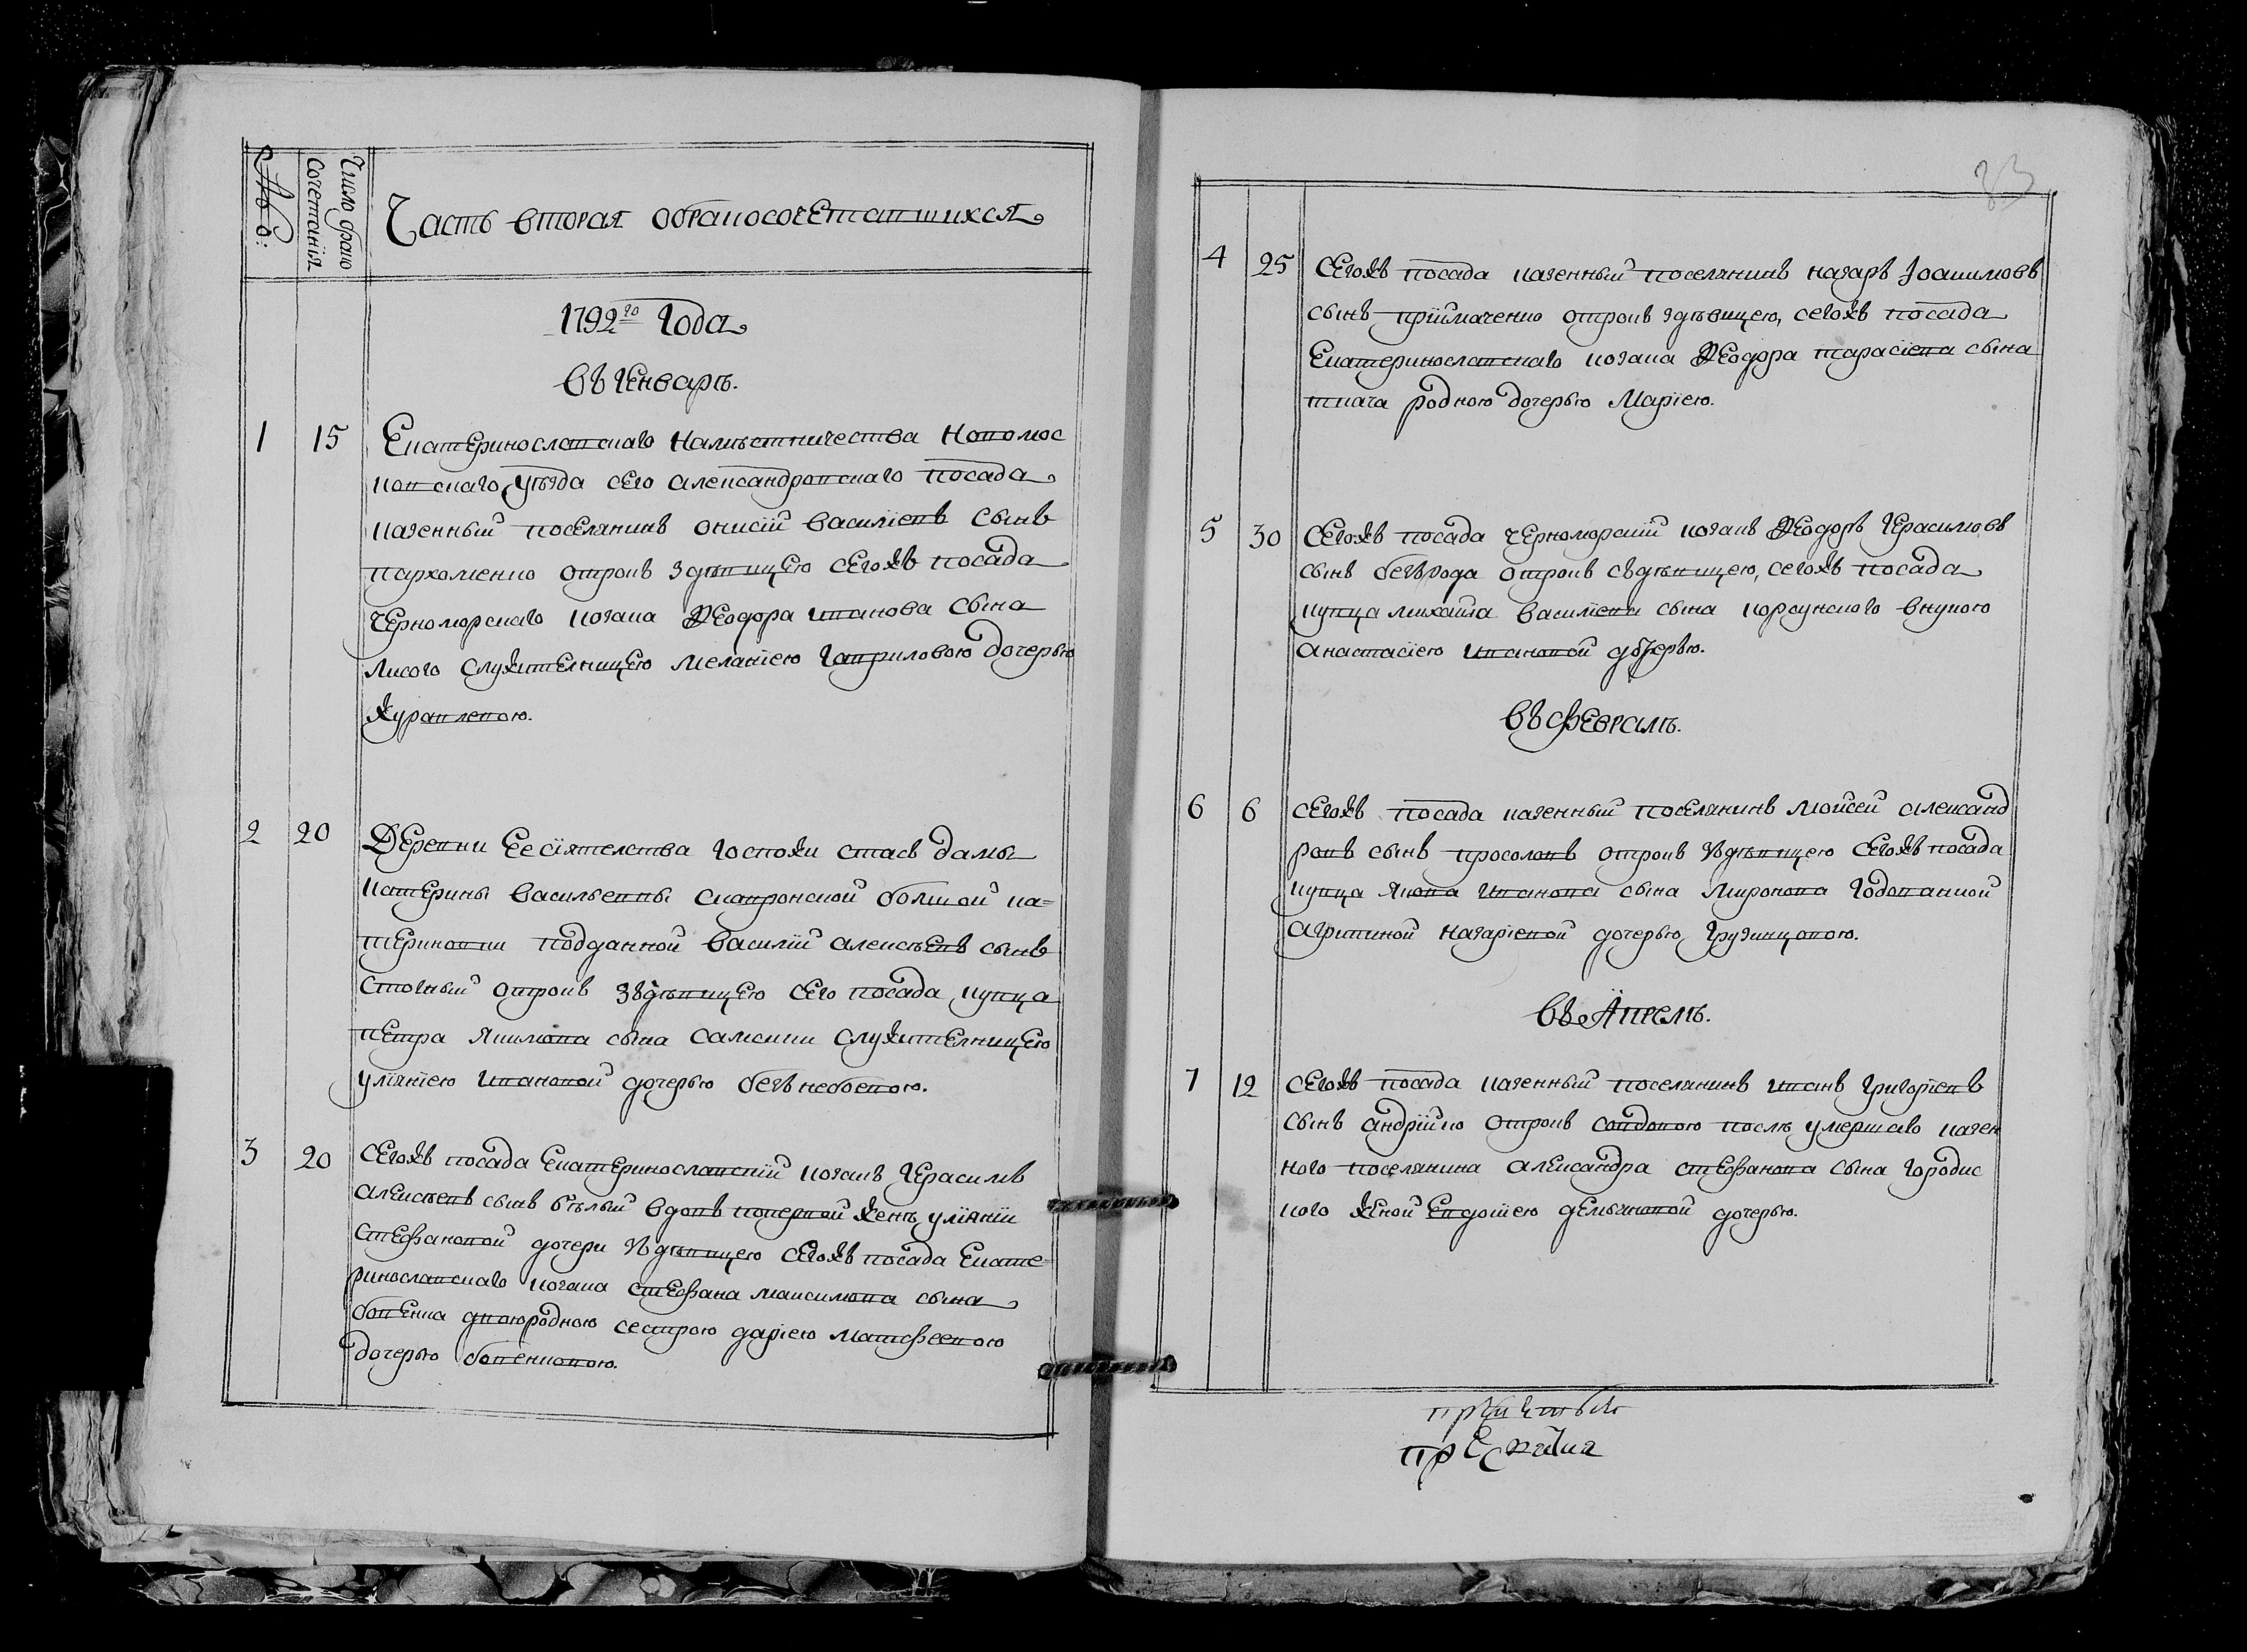 №
Число брако
сочетанія
Часть вторая обракосочетавшихся
1792го Года
Въ Генварѣ.
1 15 Екатеринославскаго Намѣстничества Новомос
ковскаго уѣзда сего александровскаго посада
казенный поселянинъ онисій василіевъ сынъ
пархоменко отрокъ здѣвицею сегожъ посада
черноморскаго козака Ѳеодора иванова сына
лисого служителницею меланіею гавриловою дочерью
журавлевою.
2 20 Деревни Ее сіятелства Госпожи статсъ дамы
катерины васильевны скавронской болшой ка=
териновки подданной василій алексѣевъ сынъ
отрокъ здѣвицею сего посада купца
петра якимова сына служителницею
уліяніею ивановой дочерью
3 20 Сегожъ посада Екатеринославскій козакъ Герасимъ
алексѣевъ сынъ бѣлый вдовъ попервой женѣ уліяніи
стефановой дочери зъдѣвицею сегожъ посада Екате=
ринославскаго козака стефана максимова сына
бовенка двоюродною сестрою даріею матфеевою
дочерью бовенковою.
4 25 Сегожъ посада казенный поселянинъ назаръ Іоакимовъ
сынъ пріймаченко отрокъ здѣвицею, сегожъ посада
Екатеринославскаго козака Ѳеодора тарасіева сына
ткача родною дочерью Маріею.
5 30 Сегожъ посада черноморскій козакъ Ѳеодоръ Герасимовъ
сынъ безърода отрокъ съдѣвицею, сегожъ посада
купца михаила василіева сына корсунского внукою
анастасіею ивановой дочерью.
Въ Февралѣ.
6 6 сегожъ посада казенный поселянинъ мойсей александ
ровъ сынъ просоловъ отрокъ зъдѣвицею сегожъ посада
купца якова иванова сына миронова годованкой
агрипиной назаріевой дочерью грузинцовою.
Въ Апрелѣ.
7 12 сегожъ посада казенный поселянинъ иванъ григоріевъ
сынъ андрійко отрокъ совдовою послѣ умершаго казен
ного поселянина александра стефанова сына городис
кого женой Евдокіею демяновой дочерью.